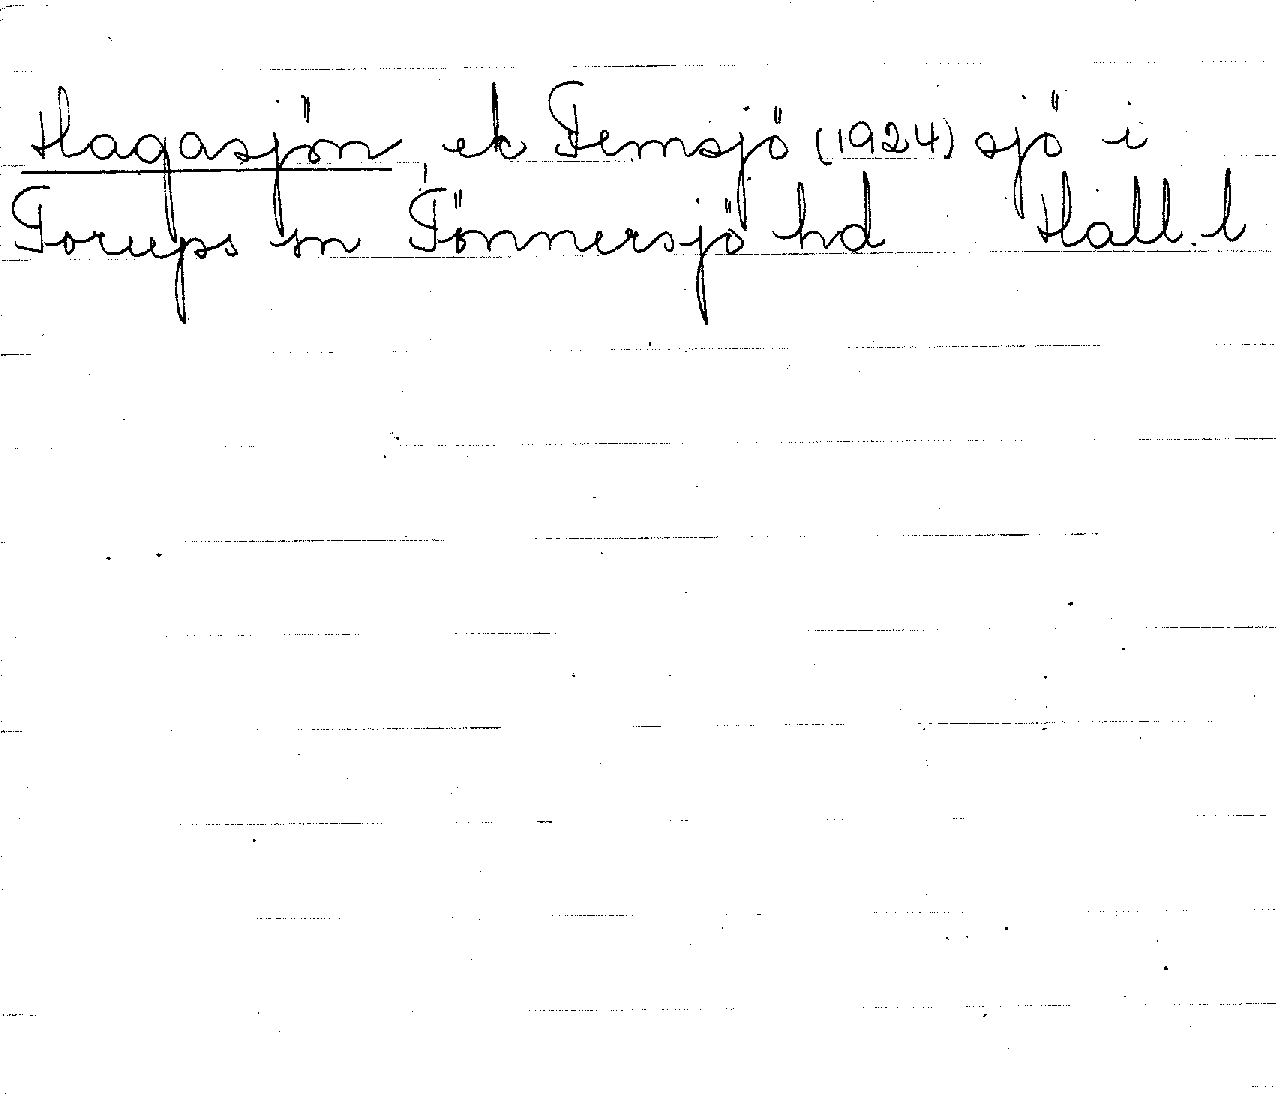 Hagasjön, ek Femsjö (1924) sjö i
Torups sn Tönnersjö hd Hall. l